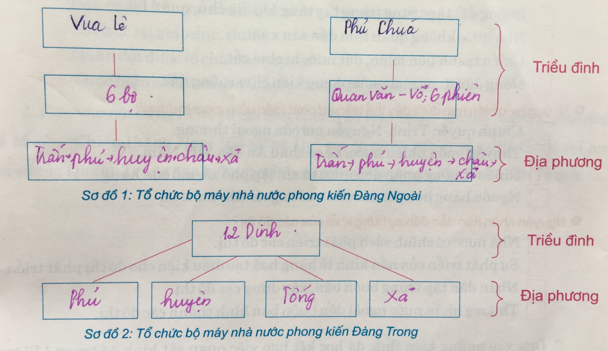 Vua Lê
Phủ Chúa
Triều đình
6 bộ
Quan văn - võ, 6 phiên
Trấn + phủ + huyện + châu + xã
Trấn + phủ + huyện + châu + xã
Địa phương
Sơ đồ 1: Tổ chức bộ máy nhà nước phong kiến Đàng Ngoài
12 Dinh
Triều đình
Phủ
huyện
Tổng
xã
Địa phương
Sơ đồ 2: Tổ chức bộ máy nhà nước phong kiến Đàng Trong